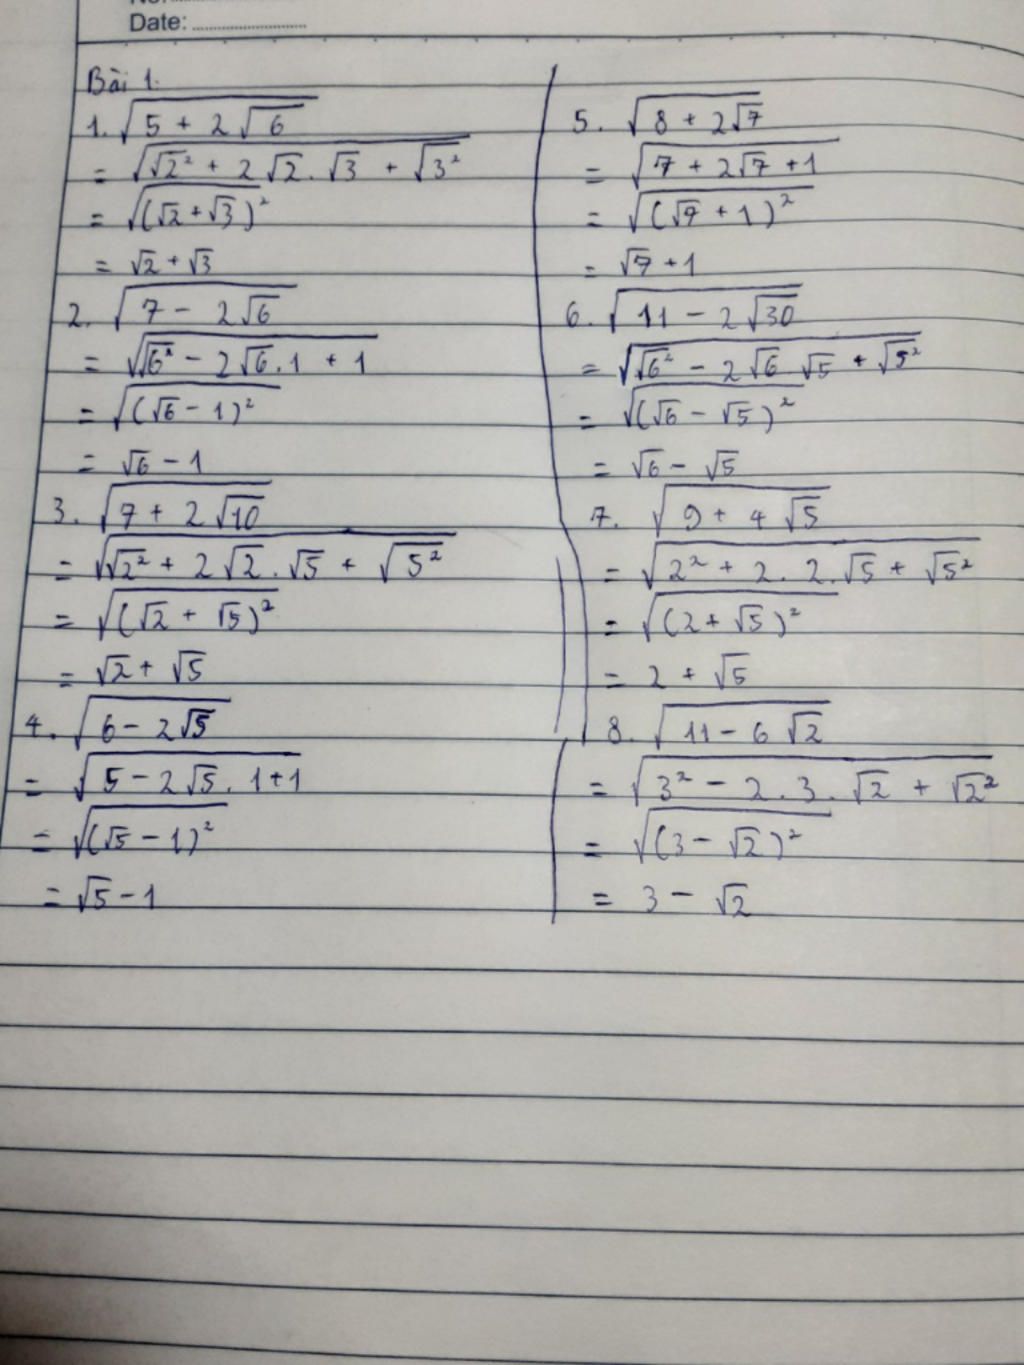 Date:
Bài 1.
1. √(5 + 2√6)
= √(√2² + 2√2.√3 + √3²)
= √((√2 + √3)²)
= √2 + √3
2. √(7 - 2√6)
= √(√6² - 2√6.1 + 1)
= √((√6 - 1)²)
= √6 - 1
3. √(7 + 2√10)
= √(√2² + 2√2.√5 + √5²)
= √((√2 + √5)²)
= √2 + √5
4. √(6 - 2√5)
= √(5 - 2√5.1+1)
= √((√5 - 1)²)
= √5 - 1
5. √(8 + 2√7)
= √(7 + 2√7 + 1)
= √((√7 + 1)²)
= √7 + 1
6. √(11 - 2√30)
= √(√6² - 2√6.√5 + √5²)
= √((√6 - √5)²)
= √6 - √5
7. √(9 + 4√5)
= √(2² + 2.2.√5 + √5²)
= √((2 + √5)²)
= 2 + √5
8. √(11 - 6√2)
= √(3² - 2.3.√2 + √2²)
= √((3 - √2)²)
= 3 - √2